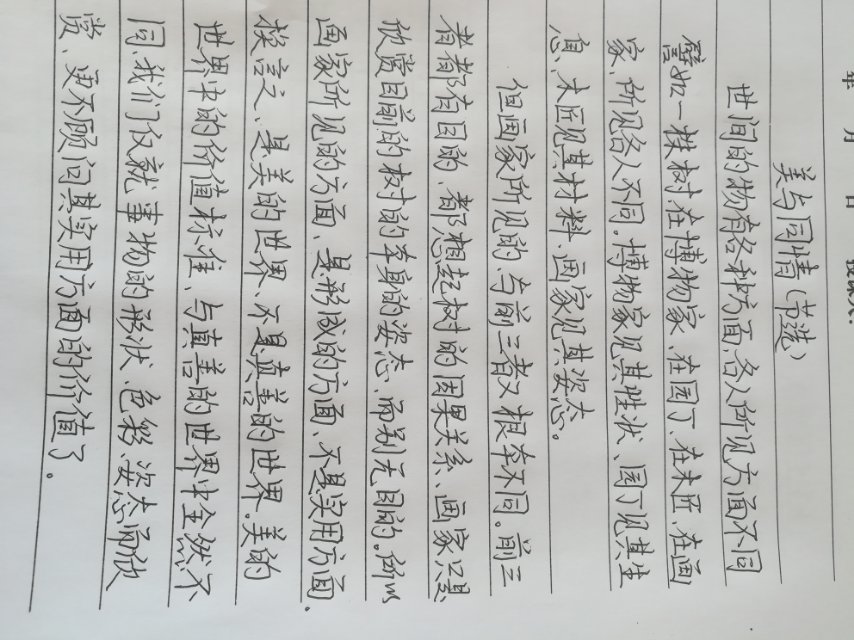 年 月 日 授课人:
美与同情(节选)
世间的物有各种方面,各人所见方面不同
譬如一株树,在博物家,在园丁,在木匠,在画
家,所见各人不同。博物家见其性状、园丁见其生
息,木匠见其材料,画家见其姿态。
但画家所见的,与前三者又根本不同。前三
者都有目的,都想起树的因果关系、画家只是
欣赏目前的树的本身的姿态,而别无目的。所以
画家所见的方面,是形成的方面,不是实用方面.
换言之,是美的世界,不是真善的世界。美的
世界中的价值标准、与真善的世界中全然不
同,我们仅就事物的形状、色彩、姿态而欣
赏、更不顾问其实用方面的价值了.